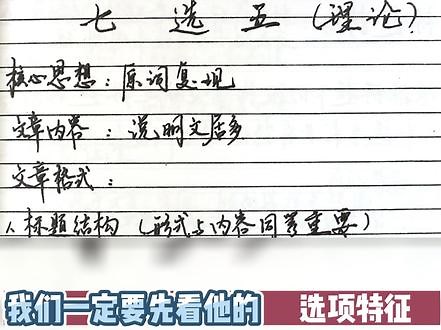 七选五(理论)
核心思想：原词复现
文章内容：说明文居多
文章格式：
1. 标题结构(形式与内容同等重要)
我们一定要先看他的 选项特征